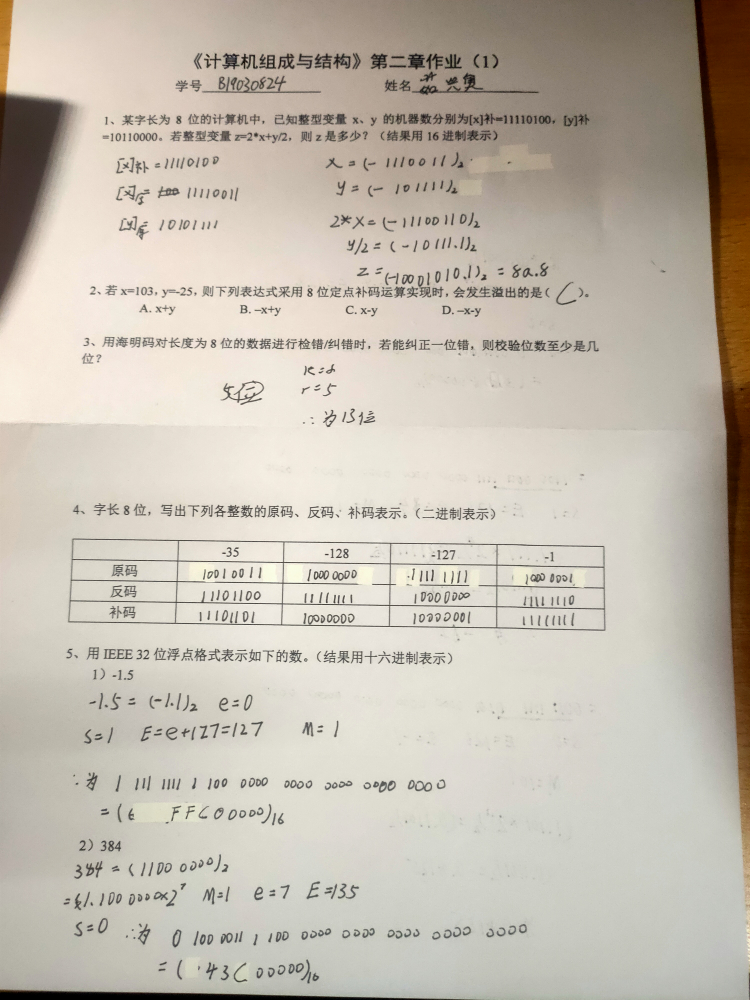 《计算机组成与结构》第二章作业（1）
学号 B19030824 姓名
1、某字长为 8 位的计算机中，已知整型变量 x、y 的机器数分别为[x]补=11110100，[y]补
=10110000。若整型变量 z=2*x+y/2，则 z 是多少？（结果用 16 进制表示）
[x]补=11110100 x=(-1110011)₂
[x]反= 11110011 y=(-101111)₂
[y]反= 10101111 2*x=(-11100110)₂
y/2=(-10111.1)₂
z=(-10001010.1)₂=8a.8
2、若 x=103, y=-25, 则下列表达式采用 8 位定点补码运算实现时, 会发生溢出的是( C )。
A. x+y B. –x+y C. x-y D. –x-y
3、用海明码对长度为 8 位的数据进行检错/纠错时，若能纠正一位错，则校验位数至少是几
位？
5位 r=5
∴为13位
4、字长 8 位，写出下列各整数的原码、反码、补码表示。（二进制表示）
-35 -128 -127 -1
原码 10010011 10000000 11111111 10000001
反码 11101100 11111111 10000000 11111110
补码 11101101 10000000 10000001 11111111
5、用 IEEE 32 位浮点格式表示如下的数。（结果用十六进制表示）
1）-1.5
-1.5=(-1.1)₂ e=0
S=1 E=e+127=127 M=1
∴为 1 111 1111 1 100 0000 0000 0000 0000 0000
=( FFC00000)₁₆
2）384
384=(1100 0000)₂
=1.100 0000×2⁷ M=1 e=7 E=135
S=0 ∴为 0 100 0011 1 100 0000 0000 0000 0000 0000
=(43C00000)₁₆